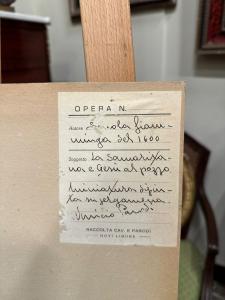 OPERA N.
Autore Scuola fiam-
minga del 1600
Soggetto La Samarita-
na e Gesù al pozzo
Miniatura dipin-
ta su pergamena.
Parodi
RACCOLTA CAV. E. PARODI
NOVI LIGURE